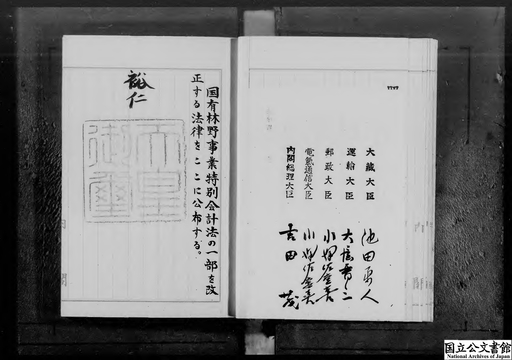 国有林野事業特別会計法の一部を改
正する法律をここに公布する。
裕仁
天皇
御璽
大蔵大臣 池田勇人
運輸大臣 大屋晋三
郵政大臣 小沢佐重喜
電気通信大臣 小沢佐重喜
内閣総理大臣 吉田茂
国立公文書館
National Archives of Japan